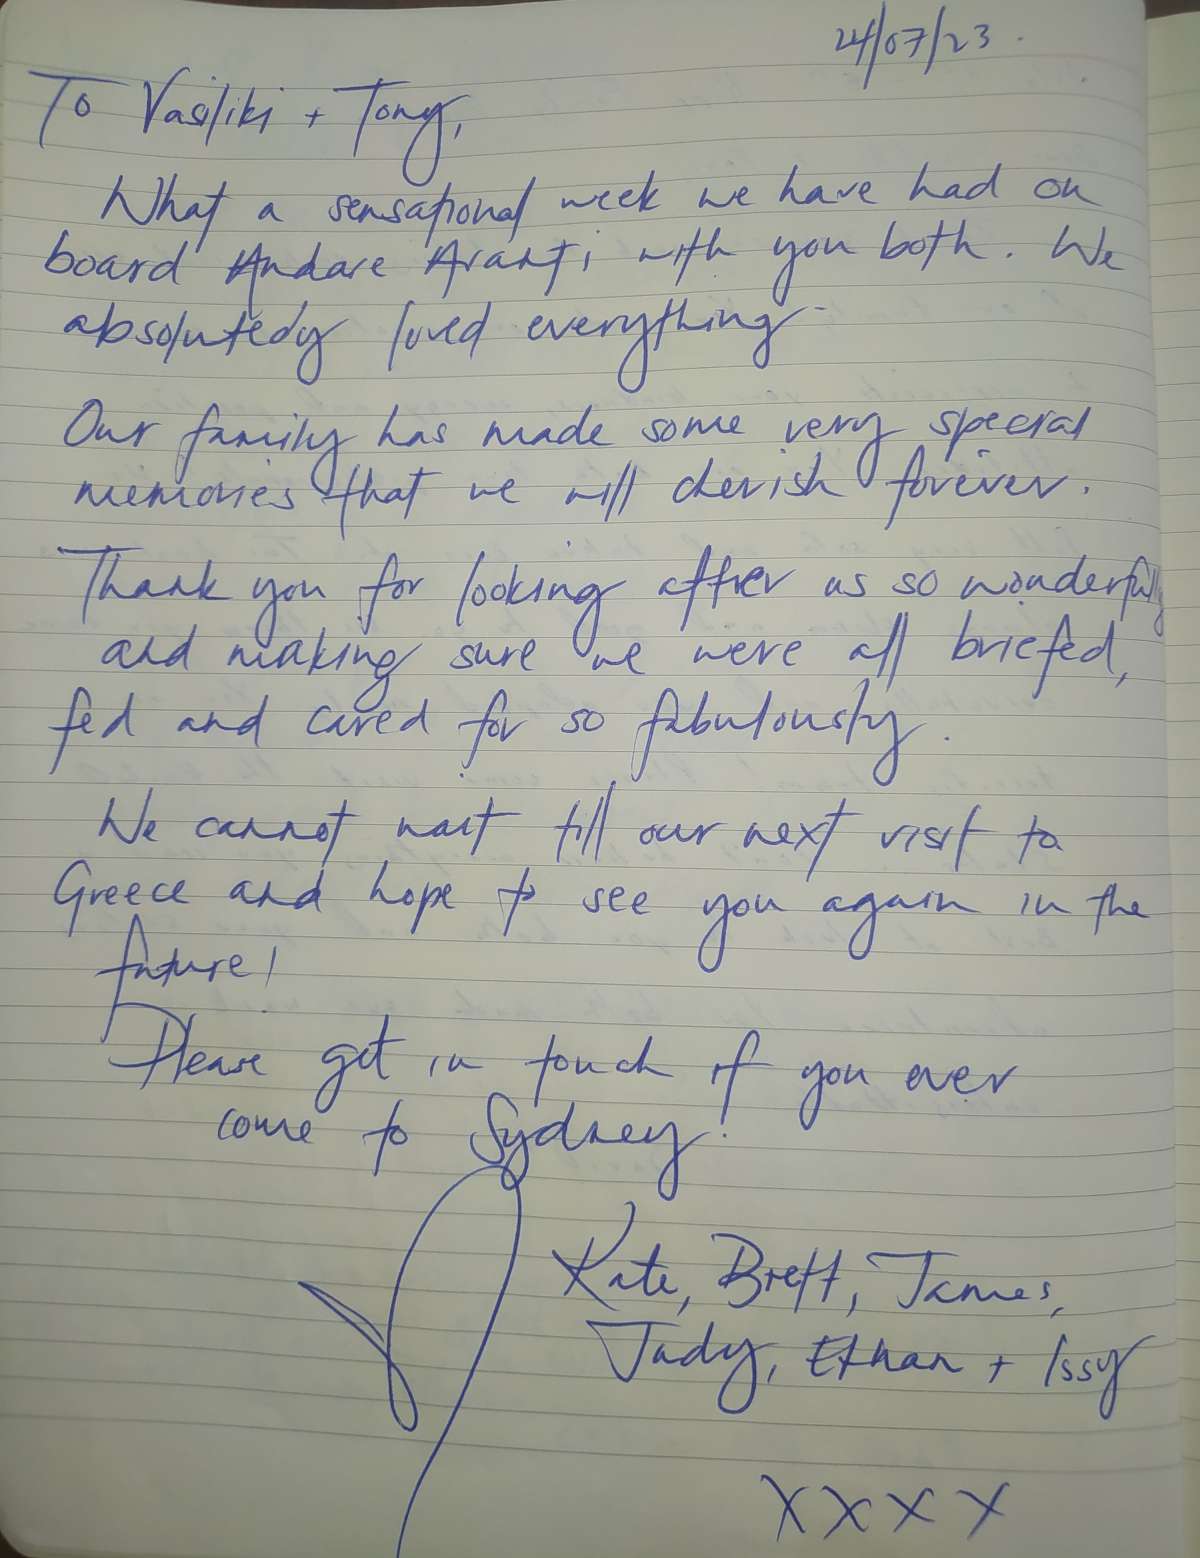 24/07/23.
To Vasiliki + Tony,
What a sensational week we have had on
board Andare Avanti with you both. We
absolutely loved everything.
Our family has made some very special
memories that we will cherish forever.
Thank you for looking after us so wonderfully
and making sure we were all briefed,
fed and cared for so fabulously.
We cannot wait till our next visit to
Greece and hope to see you again in the
future!
Please get in touch if you ever
come to Sydney!
Kate, Brett, James,
Judy, Ethan + Issy
XXXX